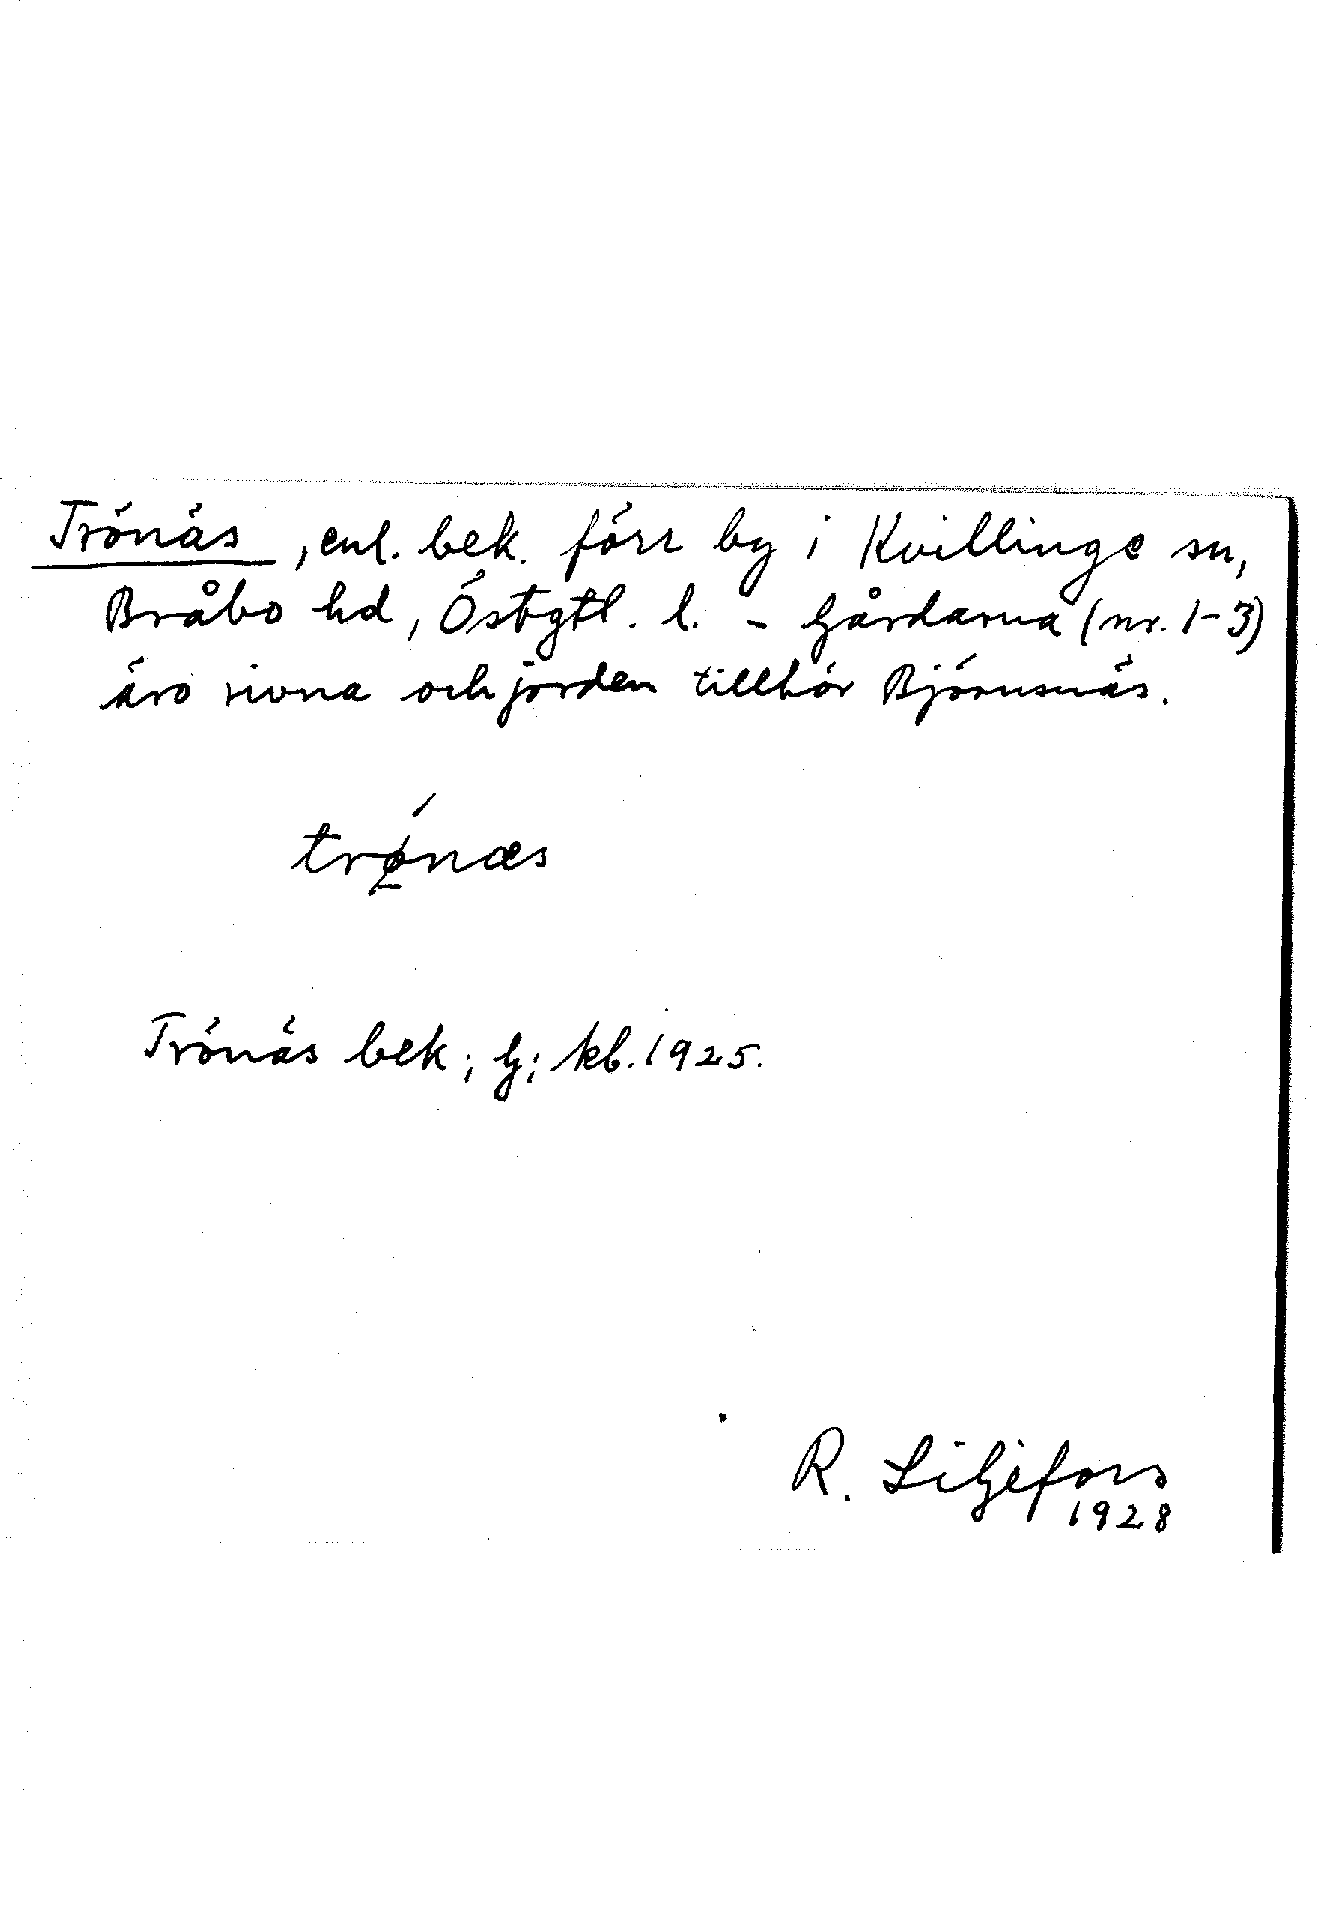 Trönäs, enl. bek. förr by i Kvillinge sn,
Bråbo hd, Östgtl. l. - Gårdarna (nr. 1-3)
äro rivna och jorden tillhör Björnsnäs.
trǿnæs
Trönäs bek; lj; kb. 1925.
R. Liljefors
1928